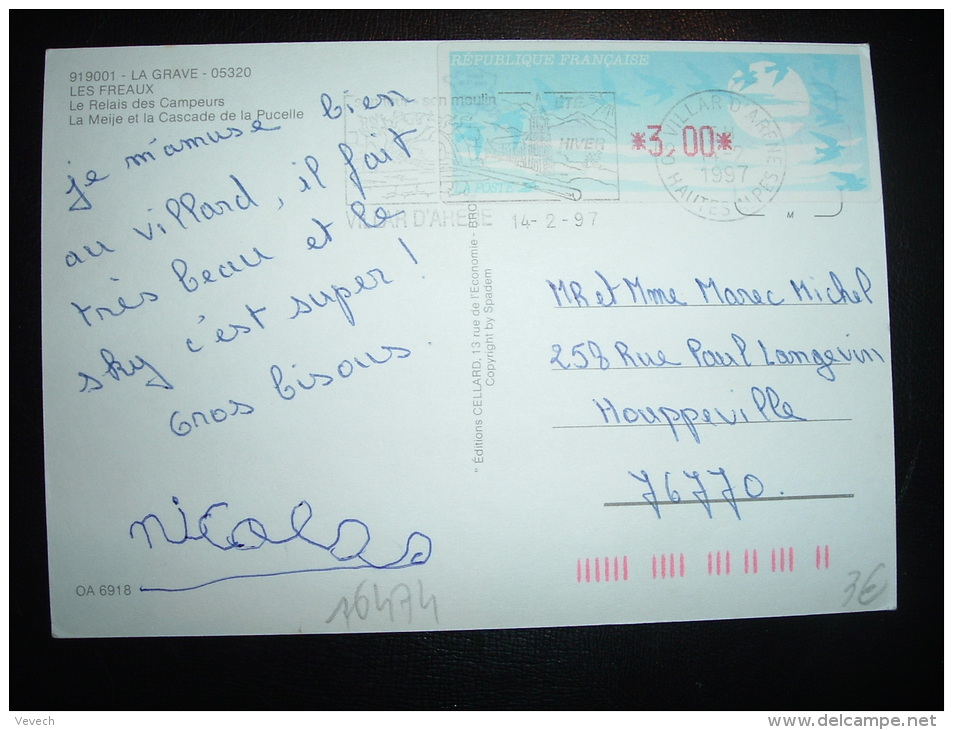 919001 - LA GRAVE - 05320
LES FREAUX
Le Relais des Campeurs
La Meije et la Cascade de la Pucelle
je m'amuse bien
au villard, il fait
très beau et le
sky c'est super !
Gros bisous.
nicolas
OA 6918
16474
" Éditions CELLARD, 13 rue de l'Economie - BRO
Copyright by Spadem
RÉPUBLIQUE FRANÇAISE
LA POSTE
*3,00*
son moulin
ÉTÉ
HIVER
VILLAR D'ARENE
14-2-97
VILLAR D'ARENE
1997
HAUTES ALPES
M
MR et Mme Marec Michel
258 Rue Paul Langevin
Houppeville
76770.
3€
Vevech
delcampe.net